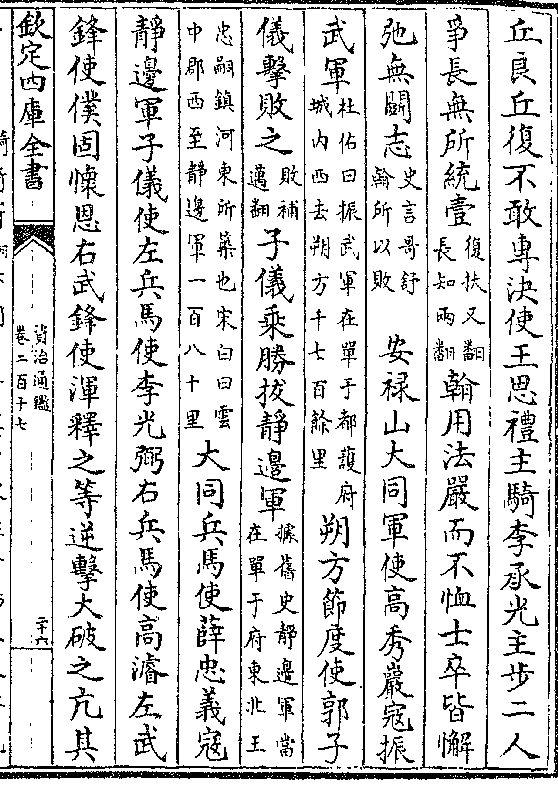 丘良丘復不敢專決使王思禮主騎李承光主步二人
爭長無所統壹復扶又翻長知兩翻翰用法嚴而不恤士卒皆懈
弛無鬬志史言哥舒翰所以敗 安祿山大同軍使高秀巖寇振
武軍杜佑曰振武軍在單于都護府城内西去朔方千七百餘里朔方節度使郭子
儀擊敗之敗補邁翻子儀乘勝拔靜邊軍據舊史靜邊軍當在單于府東北王
忠嗣鎮河東所築也宋白曰雲中郡西至靜邊軍一百八十里大同兵馬使薛忠義寇
靜邊軍子儀使左兵馬使李光弼右兵馬使高濬左武
鋒使僕固懷恩右武鋒使渾釋之等逆擊大破之亢其
欽定四庫全書
資治通鑑
卷二百十七
二十六